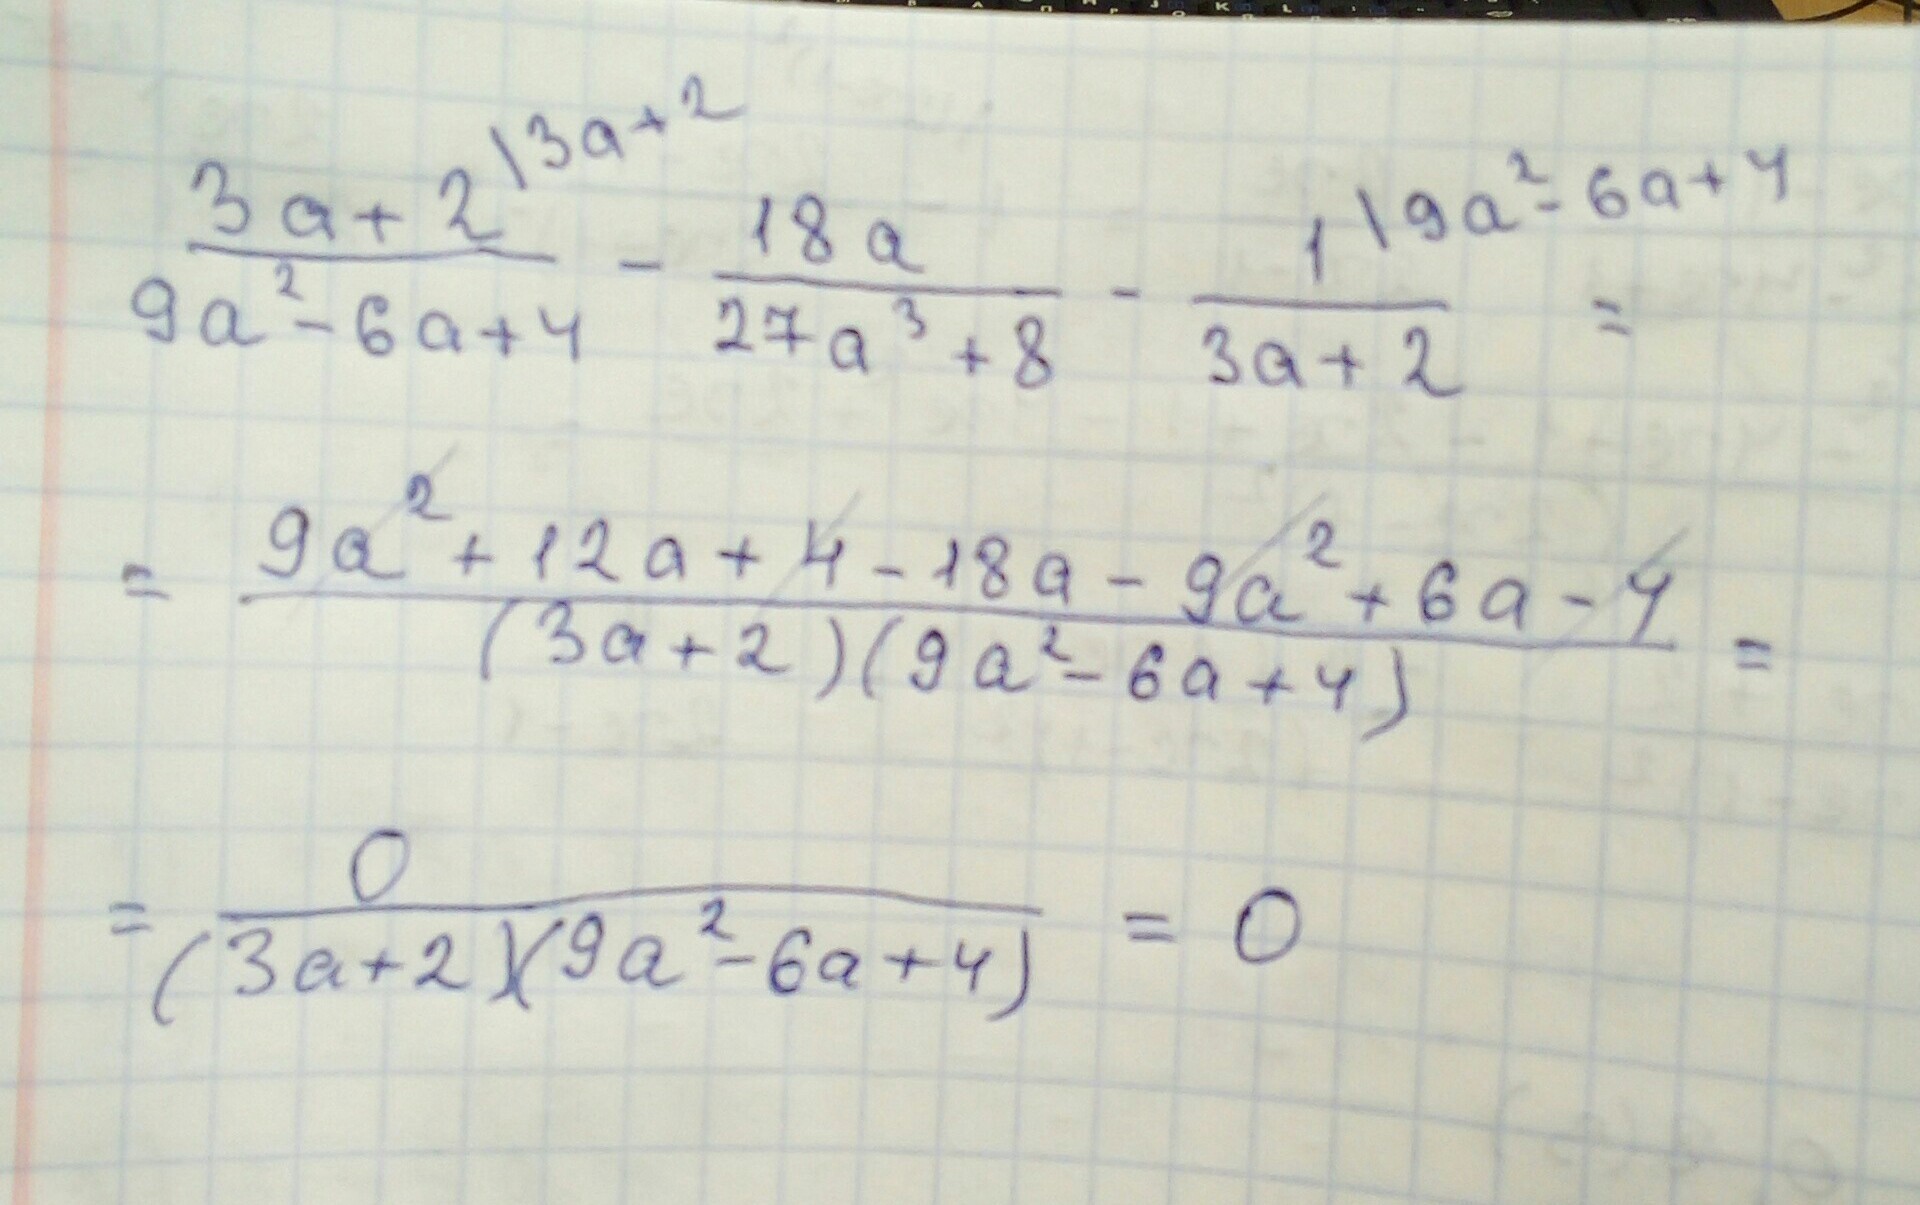 (3a+2)/(9a²-6a+4) \3a+2 - 18a/(27a³+8) - 1/(3a+2) \9a²-6a+4 =
= (9a²+12a+4-18a-9a²+6a-4)/((3a+2)(9a²-6a+4)) =
= 0/((3a+2)(9a²-6a+4)) = 0